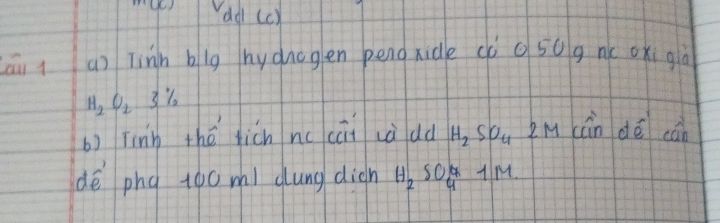 Vdd (c)
Câu 1 a) Tính blg hydrogen peroxide có ở 50g nc oxi già
H₂O₂ 3%
b) Tính thể tích nc cất và dd H₂SO₄ 2M cần để cần
để pha 100 ml dung dịch H₂SO₄ 1M.